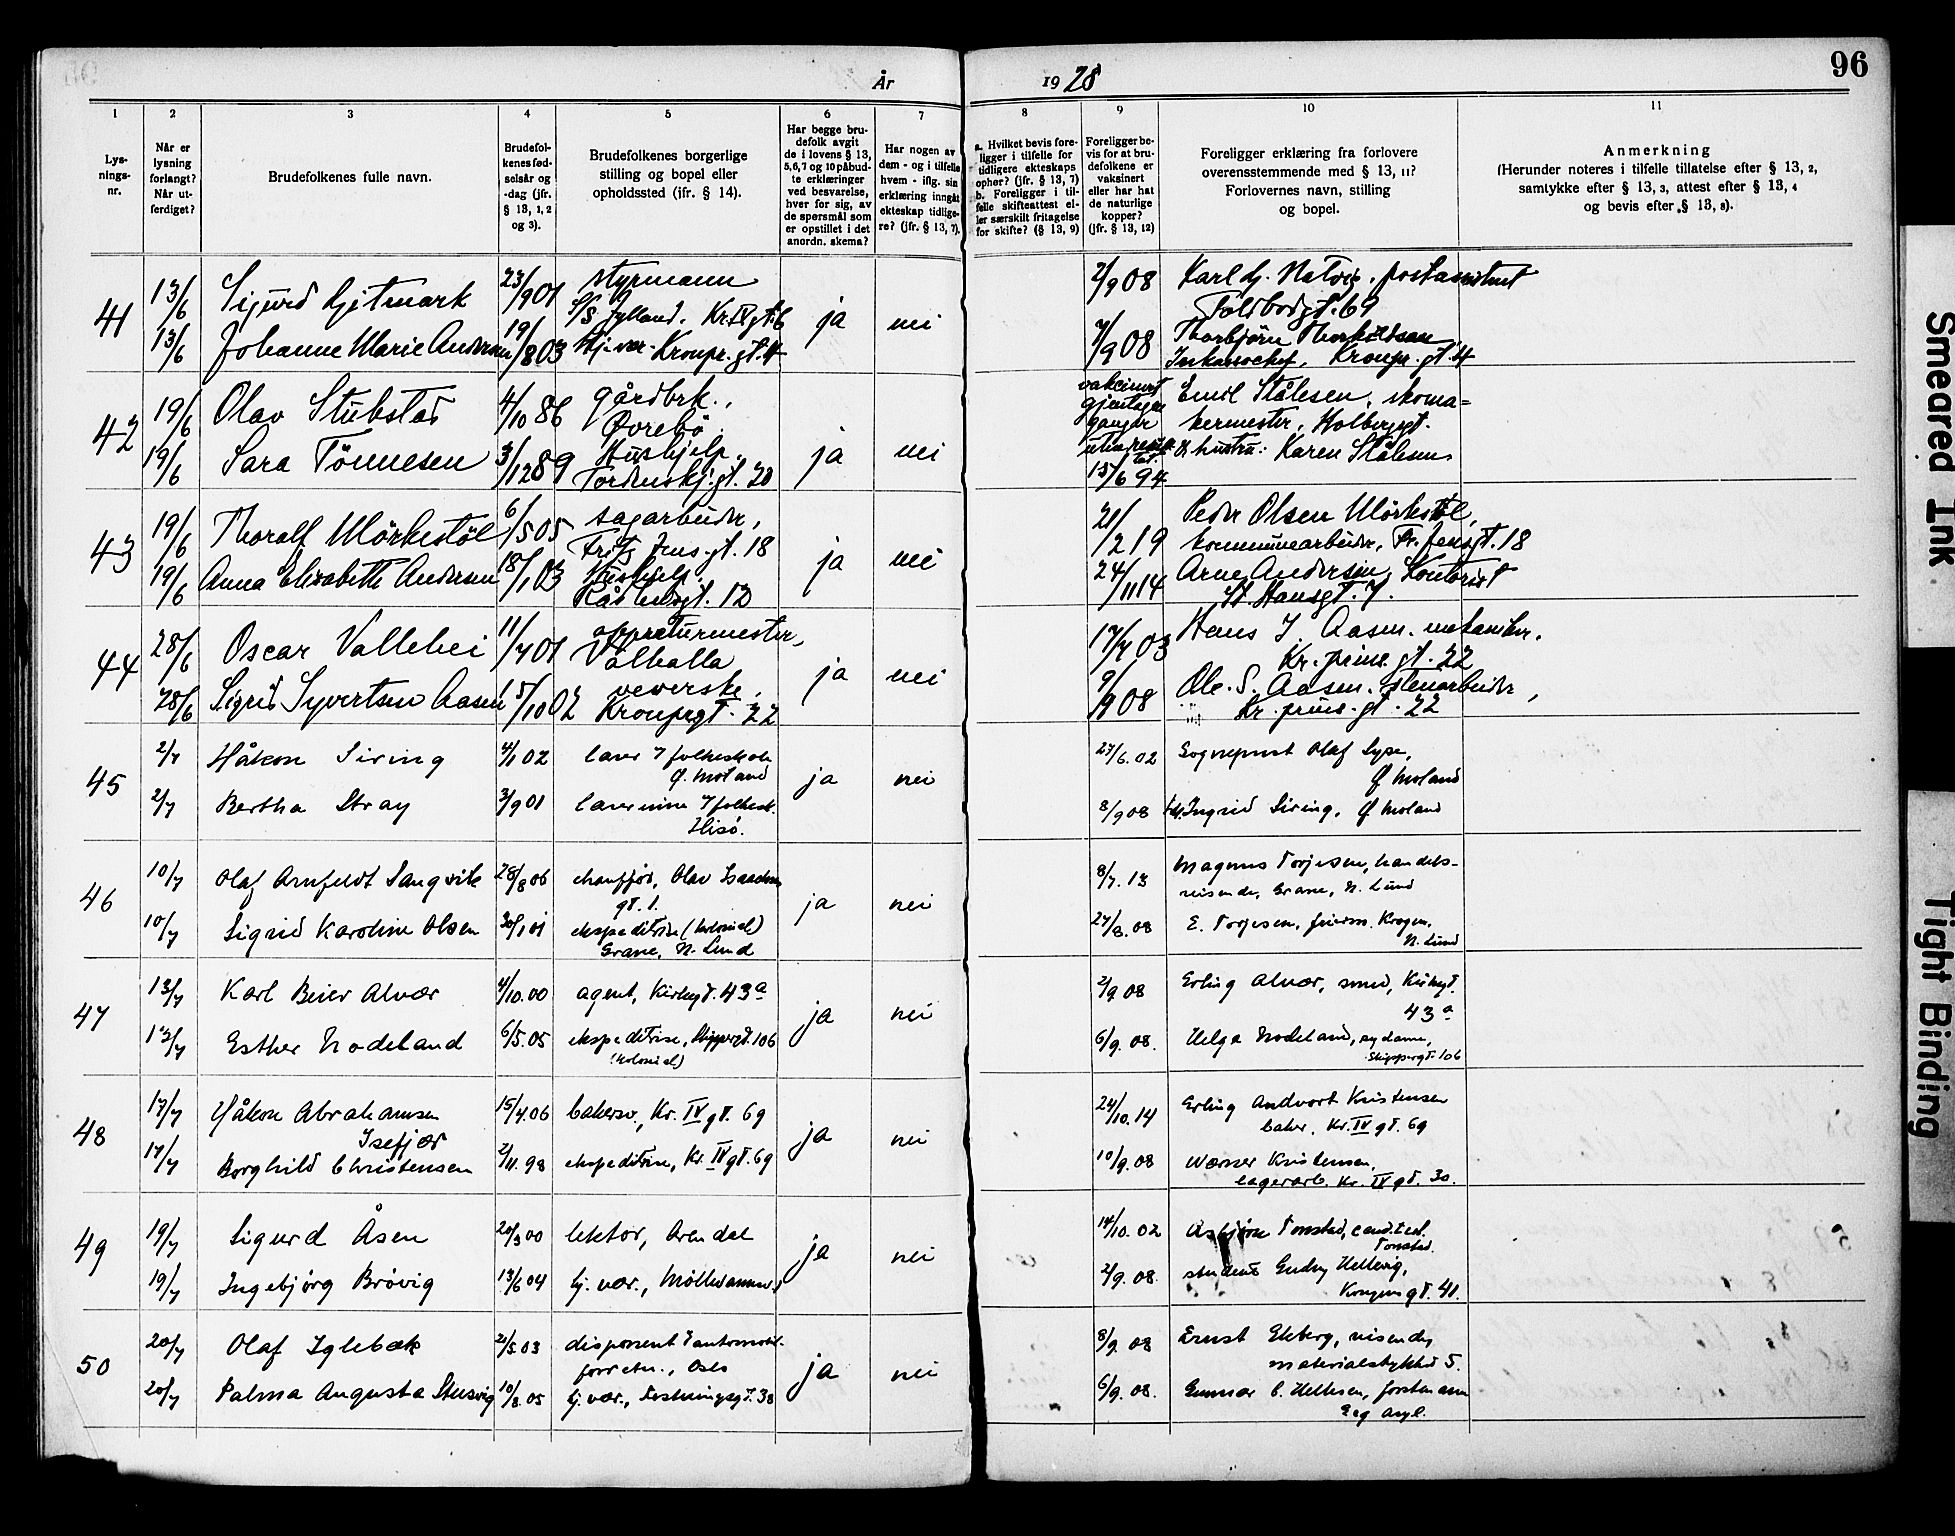 År 1928
96
1 2 3 4 5 6 7 8 9 10 11
Lys-
nings-
nr.
Når er
lysning
forlangt?
Når ut-
ferdiget?
Brudefolkenes fulle navn.
Brudefol-
kenes fød-
selsår og
-dag (jfr.
§ 13, 1, 2
og 3).
Brudefolkenes borgerlige
stilling og bopel eller
opholdssted (ifr. § 14).
Har begge bru-
defolk avgit
de i lovens § 13,
5,6,7 og 10 påbud-
te erklæringer
ved besvarelse,
hver for sig, av
de spørsmål som
er opstillet i det
anordn. skema?
Har nogen av
dem - og i tilfelle
hvem - iflg. sin
erklæring inngåt
ekteskap tidlige-
re? (jfr. § 13, 7).
a. Hvilket bevis fore-
ligger i tilfelle for
tidligere ekteskaps
ophør? (jfr. § 13, 7)
b. Foreligger i til-
felle skifteattest el-
ler særskilt fritagelse
for skifte? (§ 13, 9)
Foreligger be-
vis for at bru-
defolkene er
vaksinert
eller har hat
de naturlige
kopper?
(jfr. § 13, 12)
Foreligger erklæring fra forlovere
overensstemmende med § 13, 11?
Forlovernes navn, stilling
og bopel.
Anmerkning
(Herunder noteres i tilfelle tillatelse efter § 13, 2,
samtykke efter § 13, 3, attest efter § 13, 4
og bevis efter § 13, 8).
41
13/6 Sigurd Gjitmark 23/9 01 styrmann
S/S Jylland. Kr. IV gt. 6 ja nei
13/6 Johanne Marie Andersen 19/8 03 Hj.vær. Kronpr. gt. 4
2/9 08 Karl G. Natvig, postassistent
Toldbodgt. 69
7/9 08 Thorbjörn Thorkildsen,
Inkassochef, Kronpr. gt. 4
42
19/6 Olav Stubstad 4/10 86 gårdbrk.,
Øvrebö. ja nei
19/6 Sara Tönnesen 3/12 89 Hushjelp.
Tordenskj.gt. 20
vakcinert
gjentagne
ganger
uten
15/6 94
Emil Stålesen, skoma=
kermester, Holbergsgt.
& hustru: Karen Stålesen
43
19/6 Thoralf Mörkestöl 6/5 05 sagarbeider,
Fritz Jens.gt. 18 ja nei
19/6 Anna Elisabeth Andersen 18/1 03 Hushjelp.
Rådhusgt. 12
21/2 19 Peder Olsen Mörkestöl,
kommunearbeider, Fr. Jensgt. 18
24/11 14 Arne Andersen, Kontorist
St. Hansgt. 7.
44
28/6 Oscar Vallehei 11/7 01 appreturmester,
Valhalla ja nei
28/6 Sigrid Syvertsen Aasen 15/10 02 veverske.
Kronprgt. 22
17/7 03 Hans J. Aasen. mekaniker.
Kr. prins. gt. 22
9/9 08 Ole. S. Aasen. stenarbeider,
Kr. prins. gt. 22
45
2/7 Håkon Siring 4/1 02 lærer i folkeskole
Ø. Moland ja nei
2/7 Bertha Stray 3/9 01 lærerinne i folkesk.
Hisö.
27/6. 02 Sogneprest Olaf Lyse,
Ø Moland
8/9 08 Ingrid Siring, Ø Moland
46
10/7 Olaf Arnfeldt Langvik 28/8 06 chauffør, Olav Isaachsen
gt. 1. ja nei
10/7 Sigrid Karoline Olsen 30/1 01 ekspeditrise (kolonial)
Grane, N. Lund
8/7. 13 Magnus Torjesen, handels-
reisende, Grane, N. Lund
27/8. 08 E. Torjesen, Krogen,
N. Lund
47
13/7 Karl Beier Alvær 4/10. 00 agent, Kirkegt. 43a ja nei
13/7 Esther Nodeland 6/5. 05 ekspeditrise, Skippergt. 106
(kolonial)
2/9 08 Erling Alvær, smed, Kirkegt.
43a
6/9. 08. Helga Nodeland, sydame,
Skippergt. 106
48
17/7 Håkon Abrahamsen
Isefjær 15/4. 06 bakersv., Kr. IV gt. 69 ja nei
17/7 Borghild Christensen 2/11. 98 ekspeditrise, Kr. IV gt. 69
24/10. 14 Erling Andvort Kristensen
baker, Kr. IV gt. 69
10/9. 08 Werner Kristensen,
lagerarb. Kr. IV gt. 30.
49
19/7 Sigurd Åsen 20/3 00 lektor, Arendal ja nei
19/7 Ingebjörg Brövig 13/6 04 hj. vær.,
14/10. 02 Asbjörn Tonstad, cand.teol.
Tonstad.
2/9. 08. student Gudny Hellevig,
Kongens gt. 41.
50
20/7 Olaf Iglebæk 21/5. 03 disponent i automobil-
forretn., Oslo ja nei
20/7 Palma Augusta Stusvig 10/8. 05 hj. vær., Festningsgt. 38
8/9. 08 Ernst Ekberg, reisende,
materialstykket 5.
6/9. 08. Gunnar C. Hellesen, forstmann
Eeg Asyl.
Smeared Ink
Tight Binding